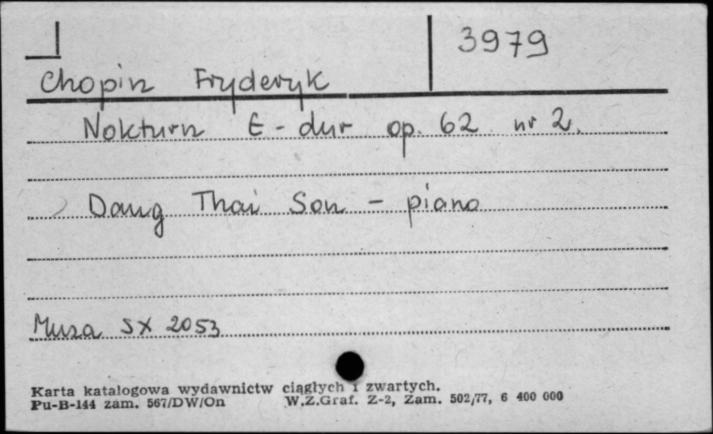 3979
Chopin Fryderyk
Nokturn E-dur op. 62 nr 2.
Dang Thai Son - piano
Muza SX 2053
Karta katalogowa wydawnictw ciągłych i zwartych.
Pu-B-144 zam. 567/DW/On W.Z.Graf. Z-2, Zam. 502/77, 6 400 000